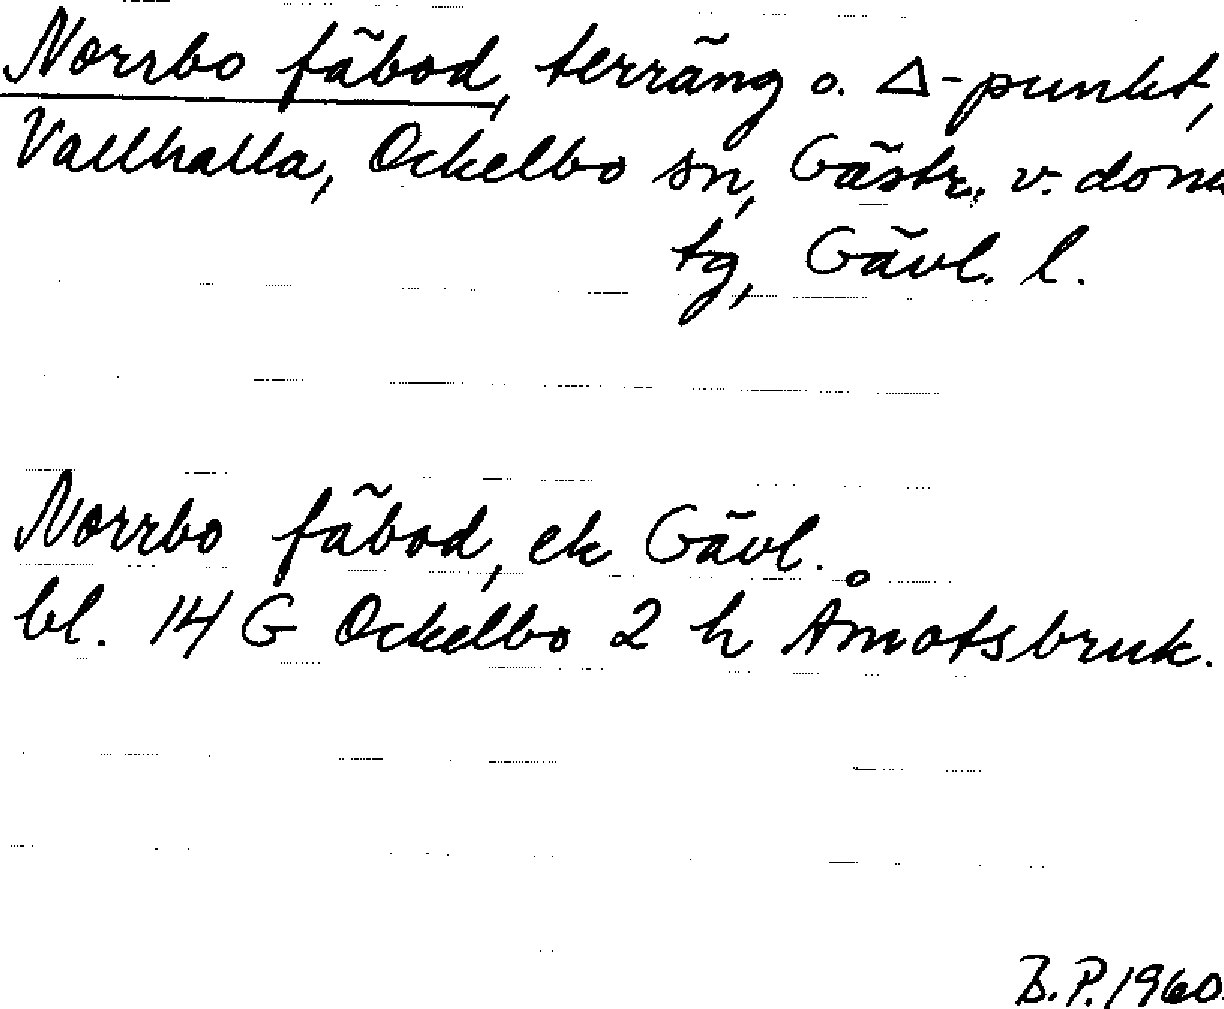 Norrbo fäbod, terräng o. △-punkt,
Vallhalla, Ockelbo sn, Gästr. v. doms
tg, Gävl. l.
Norrbo fäbod, ek Gävl.
bl. 14 G Ockelbo 2 h Åmotsbruk.
B.P. 1960.